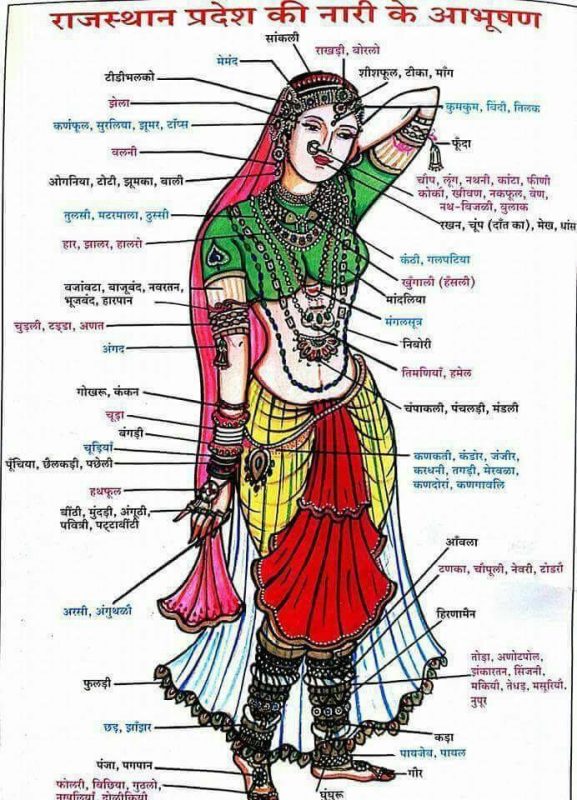 राजस्थान प्रदेश की नारी के आभूषण
सांकली
राखड़ी, बोरलो
मेमंद
शीशफूल, टीका, माँग
टीडीभलको
झेला
कुमकुम, विंदी, तिलक
कर्णफूल, सुरलिया, झूमर, टॉप्स
फूँदा
वलनी
ओगनिया, टोटी, झूमका, वाली
चौंप, लूंग, नथनी, कांटा, फीणी
कोकां, खींवण, नकफूल, वेण,
नथ-बिजली, बुलाक
रखन, चूंप (दाँत का), मेख, धांस
तुलसी, मटरमाला, ठुस्सी
हार, झालर, हालरो
कंठी, गलपटिया
खुँगाली (हँसली)
मांदलिया
मंगलसूत्र
निबोरी
तिमणियाँ, हमेल
चंपाकली, पंचलड़ी, मंडली
बजांवटा, बाजूबंद, नवरतन,
भूजबंद, हारपान
चुड़ली, टड्डा, अणत
अंगद
गोखरू, कंकन
चूड़ा
बंगड़ी
चूड़ियां
पूंचिया, छैलकड़ी, पछेली
हथफूल
बींठी, मुंदड़ी, अंगूठी,
पवित्री, पट्टाबींटी
कनकती, कंडोर, जंजीर,
करधनी, तगड़ी, मेरवळा,
कणदोरां, कणगावलि
अरसी, अंगुथळी
आँवला
टणका, चाँपूली, नेवरी, टोडरौ
हिरणामैन
तोड़ा, अणोटपोल,
झंकारतन, सिंजनी,
मकियौ, तेधड़, मसूरियौ.
नुपूर
फुलड़ी
छड़, झाँझर
कड़ा
पायजेब, पायल
पंजा, पगपान
गौर
घुंघुरू
फोलरी, बिछिया, गुठलो,